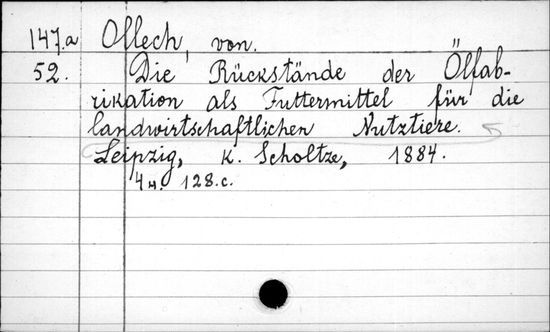 147.a Ollech, von.
52. Die Rückstände der Ölfab-
rikation als Futtermittel für die
landwirtschaftlichen Nutztiere.
Leipzig, K. Scholtze, 1884.
4н. 128.c.